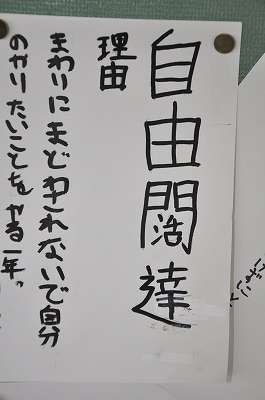 自由闊達
理由
まわりにまどわされないで自分
のやりたいことをやる一年。